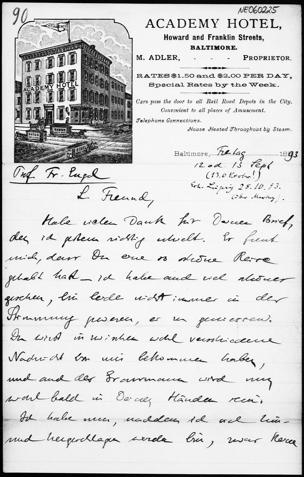 90
NEO60225
ACADEMY HOTEL,
Howard and Franklin Streets,
BALTIMORE.
M. ADLER, - - PROPRIETOR.
RATES $1.50 and $2.00 PER DAY,
Special Rates by the Week.
Cars pass the door to all Rail Road Depots in the City.
Convenient to all places of Amusement.
Telephone Connections.
House Heated Throughout by Steam.
ACADEMY HOTEL
Baltimore, Freitag 1893
12 od 13 Sept
Prof. Fr. Engel
Leipzig 28.10.93.
L. Freund,
Habe vielen Dank für Deinen Brief,
den ich gestern richtig erhielt. Es freut
mich, dass Du eine so schöne Reise
gehabt hast – ich habe auch viel schönes
gesehen, bin leider nicht immer in der
Stimmung gewesen, es zu geniessen.
Du wirst inzwischen wohl verschiedene
Nachricht von mir bekommen haben,
und auch der Grassmann wird nun
wohl bald in Deinen Händen sein.
Ich habe nun, nachdem ich viel hin-
und hergeschlagen worden bin, zwar keine